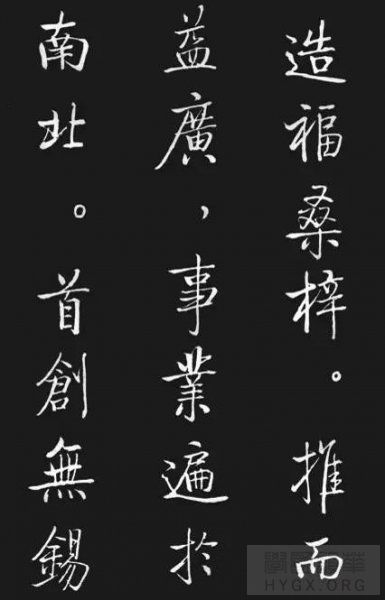 造福桑梓。推而
益廣，事業遍於
南北。首創無錫
HYGX.ORG